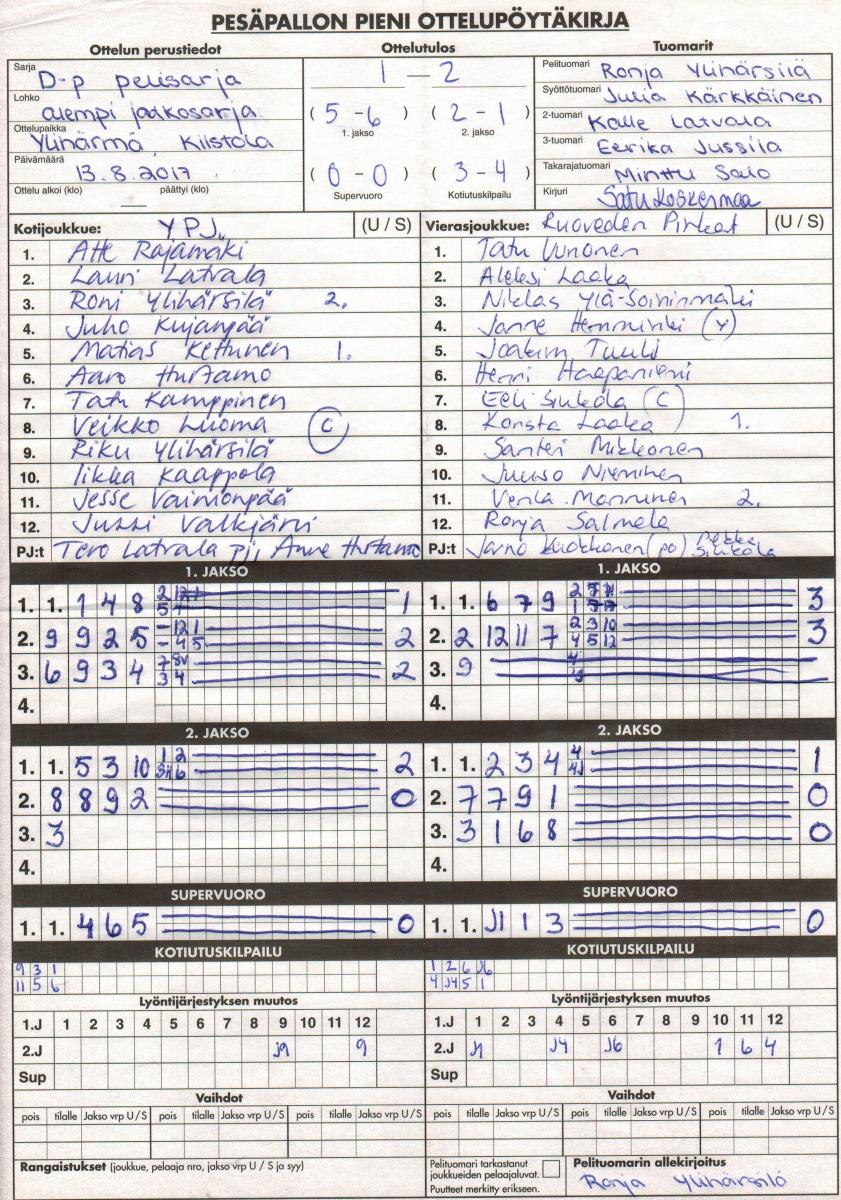 PESÄPALLON PIENI OTTELUPÖYTÄKIRJA
Ottelun perustiedot Ottelutulos Tuomarit
Sarja D-p pelisarja
Lohko alempi jatkosarja
Ottelupaikka Ylihärmä, Kiistola
Päivämäärä 13.8.2017
Ottelu alkoi (klo) — päättyi (klo)
1 — 2
( 5 - 6 ) ( 2 - 1 )
1. jakso 2. jakso
( 0 - 0 ) ( 3 - 4 )
Supervuoro Kotiutuskilpailu
Pelituomari Ronja Ylihärsilä
Syöttötuomari Julia Kärkkäinen
2-tuomari Kalle Latvala
3-tuomari Eerika Jussila
Takarajatuomari Minttu Salo
Kirjuri Satu Koskenmaa
Kotijoukkue: YPJ (U / S)
1. Atte Rajamäki
2. Lauri Latvala
3. Roni Ylihärsilä 2.
4. Juho Kujanpää
5. Matias Kettunen 1.
6. Aaro Hurtamo
7. Tatu Kamppinen
8. Veikko Luoma (C)
9. Riku Ylihärsilä
10. Iikka Kaappola
11. Jesse Vaimonpää
12. Jussi Valkjärvi
PJ:t Tero Latvala pj, Anne Hurtamo
Vierasjoukkue: Ruoveden Pirkat (U / S)
1. Tatu Uunonen
2. Aleksi Laaka
3. Niklas Ylä-Soininmäki
4. Janne Hemminki (Y)
5. Joakim Tuuli
6. Henri Haapaniemi
7. Eeli Sinkola (C)
8. Konsta Laaka 1.
9. Santeri Mikkonen
10. Juuso Nieminen
11. Venla Manninen 2.
12. Ronja Salmela
PJ:t Jarno Kuokkanen (po) Pekka Sinkola
1. JAKSO
1. 1. 1 4 8 1
2. 9 9 2 5 2
3. 6 9 3 4 2
4.
1. JAKSO
1. 1. 6 7 9 3
2. 2 12 11 7 2 3 10 4 5 12 3
3. 9
4.
2. JAKSO
1. 1. 5 3 10 2
2. 8 8 9 2 0
3. 3
4.
2. JAKSO
1. 1. 2 3 4 1
2. 7 7 9 1 0
3. 3 1 6 8 0
4.
SUPERVUORO
1. 1. 4 6 5 0
SUPERVUORO
1. 1. J1 1 3 0
KOTIUTUSKILPAILU
9 3 1
11 5 6
KOTIUTUSKILPAILU
1 2 6 J6
4 J4 5 1
Lyöntijärjestyksen muutos
1.J 1 2 3 4 5 6 7 8 9 10 11 12
2.J J9 9
Sup
Lyöntijärjestyksen muutos
1.J 1 2 3 4 5 6 7 8 9 10 11 12
2.J J1 J4 J6 1 6 4
Sup
Vaihdot
pois tilalle Jakso vrp U/S pois tilalle Jakso vrp U/S
Vaihdot
pois tilalle Jakso vrp U/S pois tilalle Jakso vrp U/S
Rangaistukset (joukkue, pelaaja nro, jakso vrp U / S ja syy)
Pelituomari tarkastanut
joukkueiden pelaajaluvat.
Puutteet merkitty erikseen.
Pelituomarin allekirjoitus
Ronja Ylihärsilä